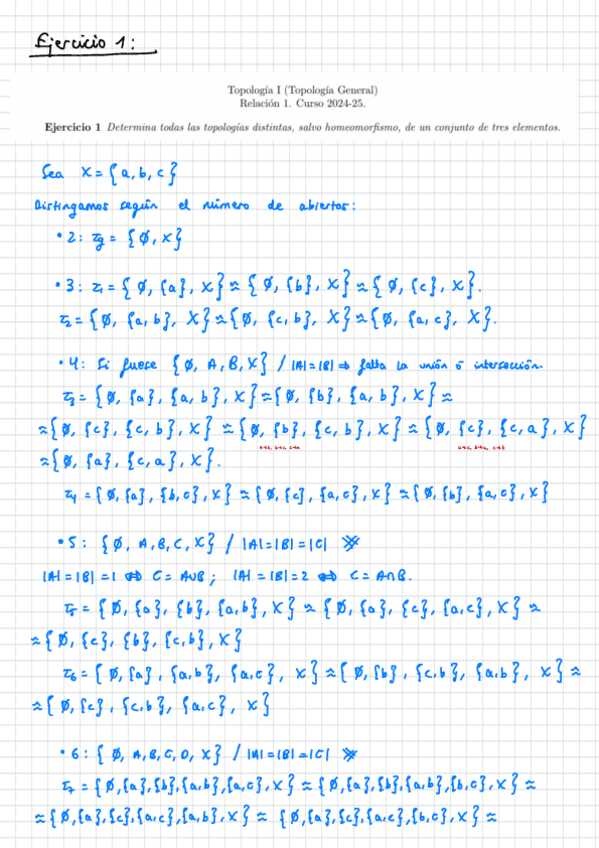 Ejercicio 1:
Topología I (Topología General)
Relación 1. Curso 2024-25.
Ejercicio 1 Determina todas las topologías distintas, salvo homeomorfismo, de un conjunto de tres elementos.
Sea X = {a, b, c}
Distingamos según el número de abiertos:
• 2: τg = {Ø, X}
• 3: τ1 = {Ø, {a}, X} ≈ {Ø, {b}, X} ≈ {Ø, {c}, X}.
τ2 = {Ø, {a,b}, X} ≈ {Ø, {c,b}, X} ≈ {Ø, {a,c}, X}.
• 4: Si fuese {Ø, A, B, X} / |A|=|B| ⇒ falta la unión ó intersección.
τ3 = {Ø, {a}, {a,b}, X} ≈ {Ø, {b}, {a,b}, X} ≈
≈ {Ø, {c}, {c,b}, X} ≈ {Ø, {b}, {c,b}, X} ≈ {Ø, {c}, {c,a}, X}
≈ {Ø, {a}, {c,a}, X}.
τ4 = {Ø, {a}, {b,c}, X} ≈ {Ø, {c}, {a,c}, X} ≈ {Ø, {b}, {a,c}, X}
• 5: {Ø, A, B, C, X} / |A|=|B|=|C|
|A|=|B|=1 ⇔ C = A∪B; |A|=|B|=2 ⇔ C = A∩B.
τ5 = {Ø, {a}, {b}, {a,b}, X} ≈ {Ø, {a}, {c}, {a,c}, X} ≈
≈ {Ø, {c}, {b}, {c,b}, X}
τ6 = {Ø, {a}, {a,b}, {a,c}, X} ≈ {Ø, {b}, {c,b}, {a,b}, X} ≈
≈ {Ø, {c}, {c,b}, {a,c}, X}
• 6: {Ø, A, B, C, D, X} / |A|=|B|=|C|
τ7 = {Ø,{a},{b},{a,b},{a,c},X} ≈ {Ø,{a},{b},{a,b},{b,c},X} ≈
≈ {Ø,{a},{c},{a,c},{a,b},X} ≈ {Ø,{a},{c},{a,c},{b,c},X} ≈